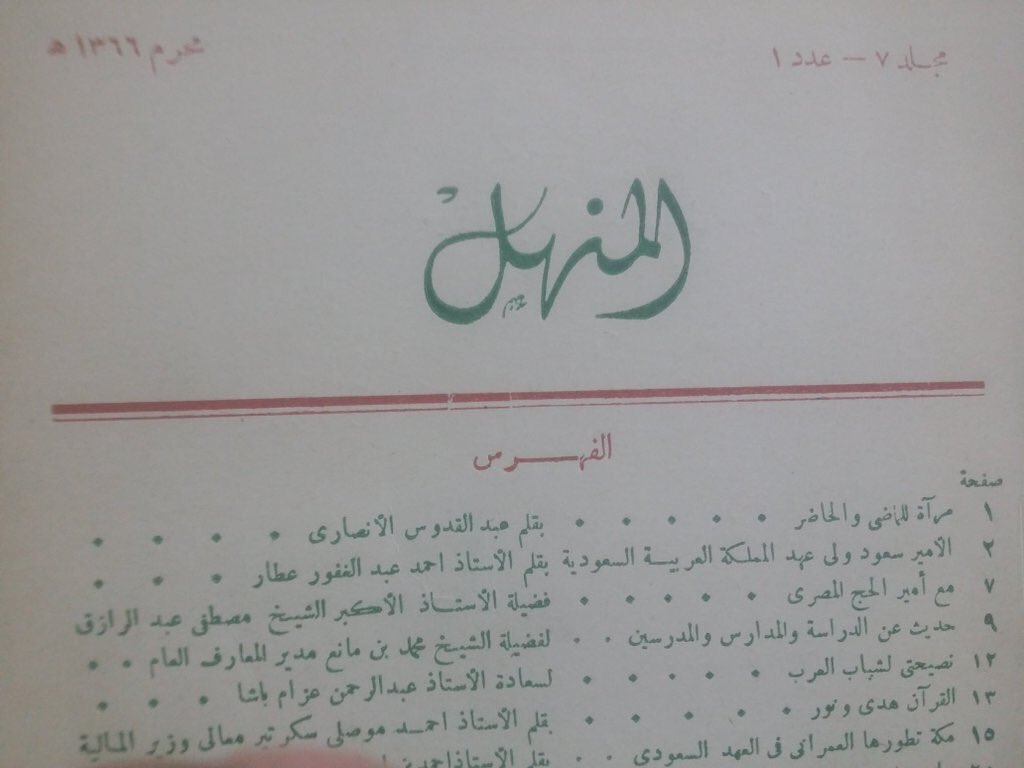 مجلد ٧ — عدد ١
محرم ١٣٦٦ ه
المنهل
الفهرس
صفحة
١ مرآة للماضى والحاضر . . . . . بقلم عبد القدوس الأنصارى . . . .
٢ الأمير سعود ولى عهد المملكة العربية السعودية بقلم الأستاذ احمد عبد الغفور عطار . . .
٧ مع أمير الحج المصرى . . . . . فضيلة الأستاذ الأكبر الشيخ مصطفى عبد الرازق
٩ حديث عن الدراسة والمدارس والمدرسين . . لفضيلة الشيخ محمد بن مانع مدير المعارف العام . .
١٢ نصيحتى لشباب العرب . . . . . لسعادة الأستاذ عبدالرحمن عزام باشا . . .
١٣ القرآن هدى ونور . . . . . بقلم الأستاذ احمد موصلى سكرتير معالى وزير المالية
١٥ مكة تطورها العمرانى فى العهد السعودى . . بقلم الأستاذ احمد